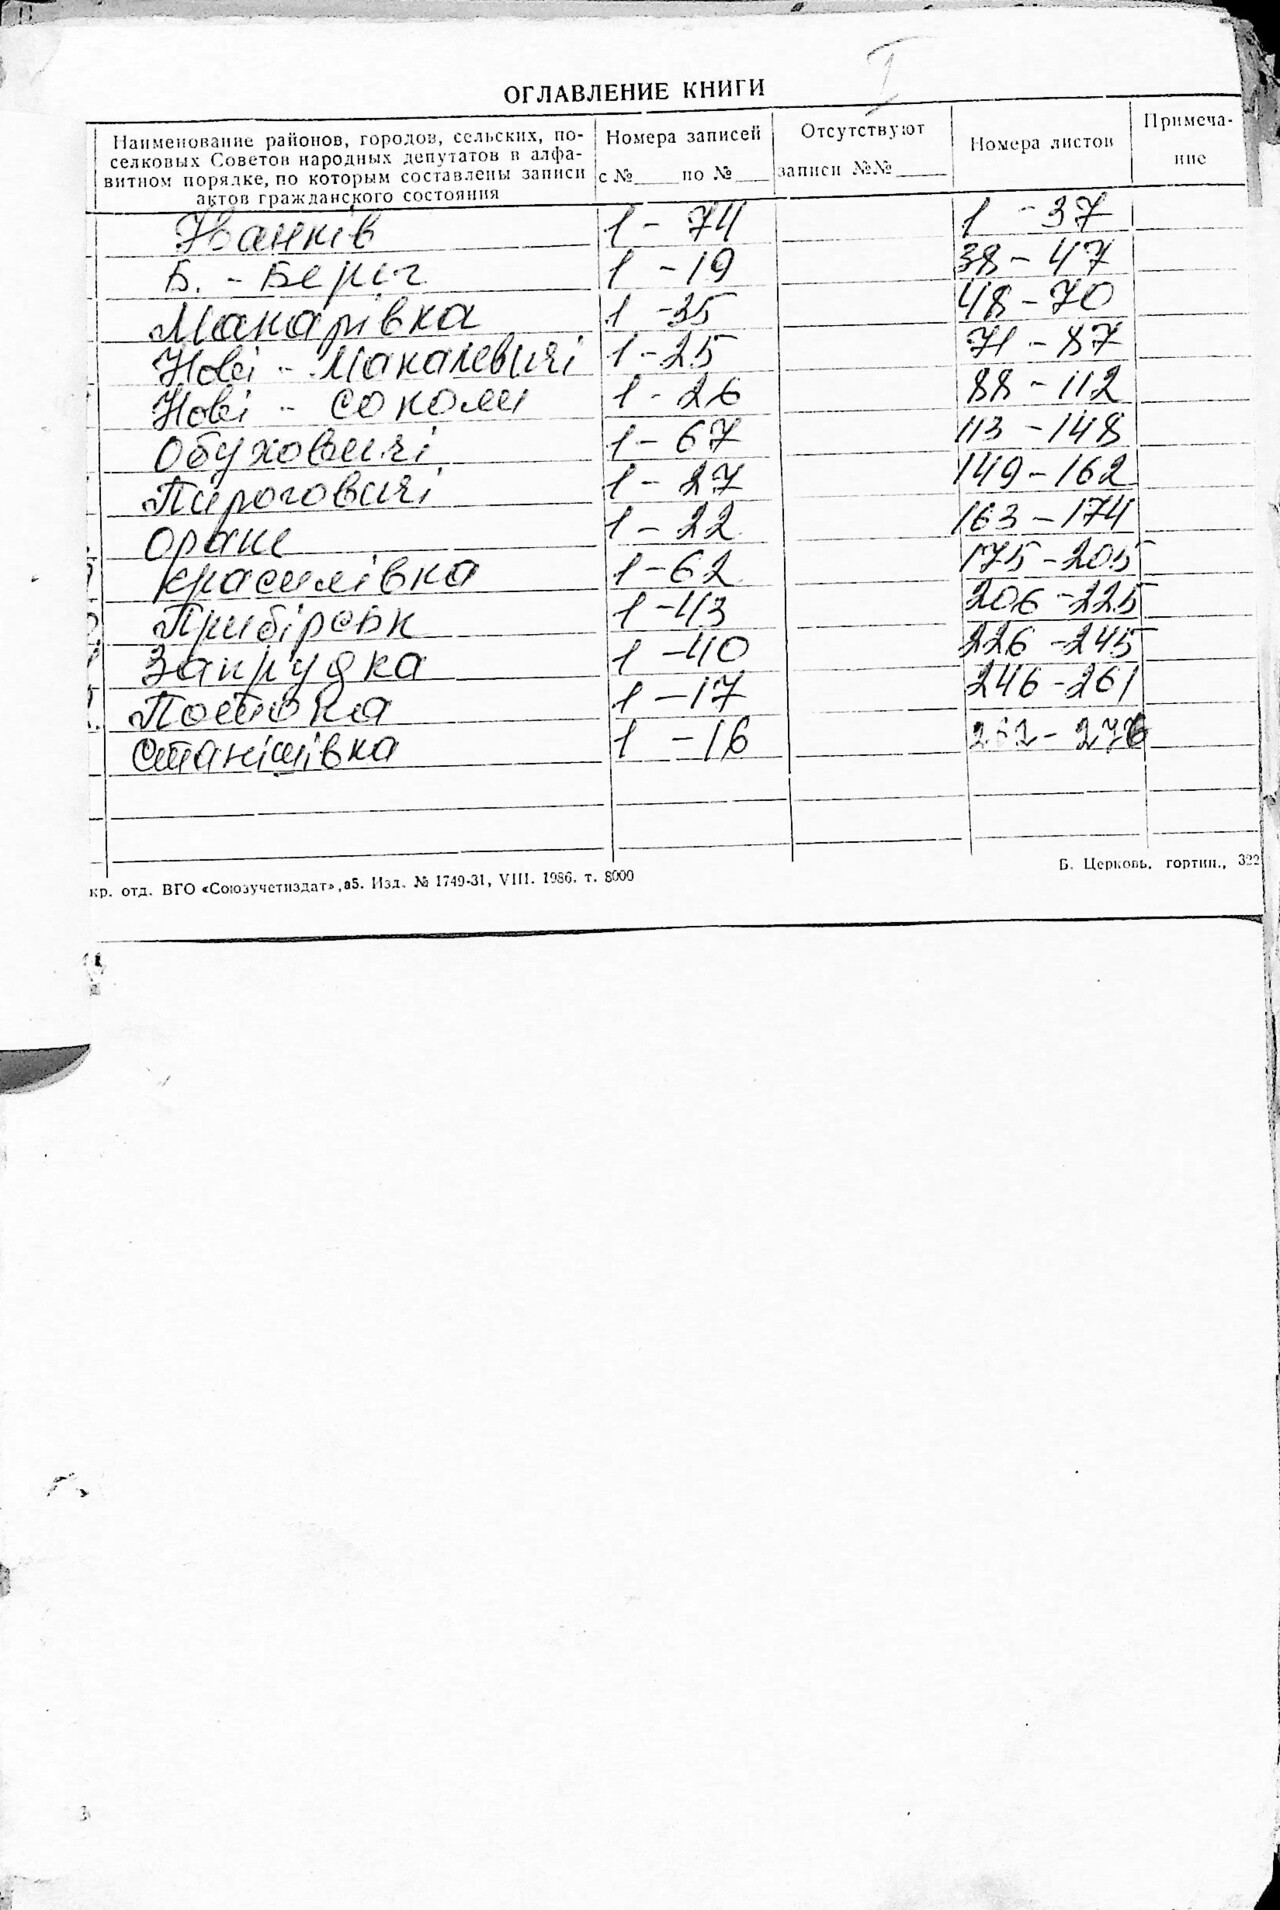 I
ОГЛАВЛЕНИЕ КНИГИ
Наименование районов, городов, сельских, по-
селковых Советов народных депутатов в алфа-
витном порядке, по которым составлены записи
актов гражданского состояния
Номера записей
с №____ по №____
Отсутствуют
записи №№______
Номера листов
Примеча-
ние
Іванків 1 - 74 1 - 37
Б. - Берег 1 - 19 38 - 47
Макарівка 1 - 35 48 - 70
Нові - Макалевичі 1 - 25 71 - 87
Нові - Соколи 1 - 26 88 - 112
Обуховичі 1 - 67 113 - 148
Пироговичі 1 - 27 149 - 162
Оране 1 - 22 163 - 174
Красилівка 1 - 62 175 - 205
Прибірськ 1 - 43 206 - 225
Запрудка 1 - 40 226 - 245
1 - 17 246 - 261
Станішівка 1 - 16 262 - 276
кр. отд. ВГО «Союзучетиздат», а5. Изд. № 1749-31, VIII. 1986. т. 8000
Б. Церковь, гортип., 322